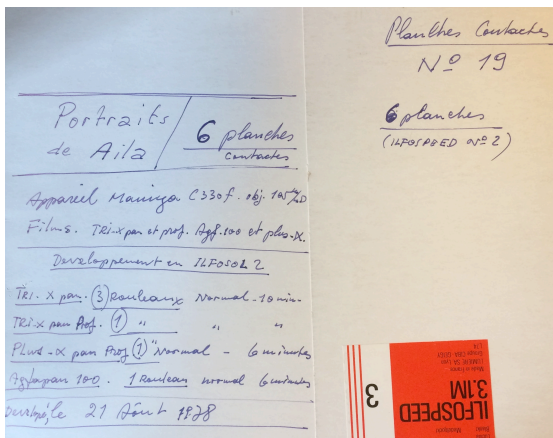 Portraits
de Aila
6 planches
contactes
Appareil Mamiya C330f. obj. 105 DS
Films. TRI-X pan et prof. Agf. 100 et plus-X.
Developpement en ILFOSOL 2
TRI-X pan. (3) Rouleaux Normal - 10 min.
TRI-X pan Prof. (1) " " "
PLUS-X pan Prof (1) " Normal - 6 minutes
Agfapan 100. 1 Rouleau normal 6 minutes
le 21 Août 1978
Planches Contactes
Nº 19
6 planches
(ILFOSPEED Nº 2)
ILFOSPEED
3.1M
3
Made in France